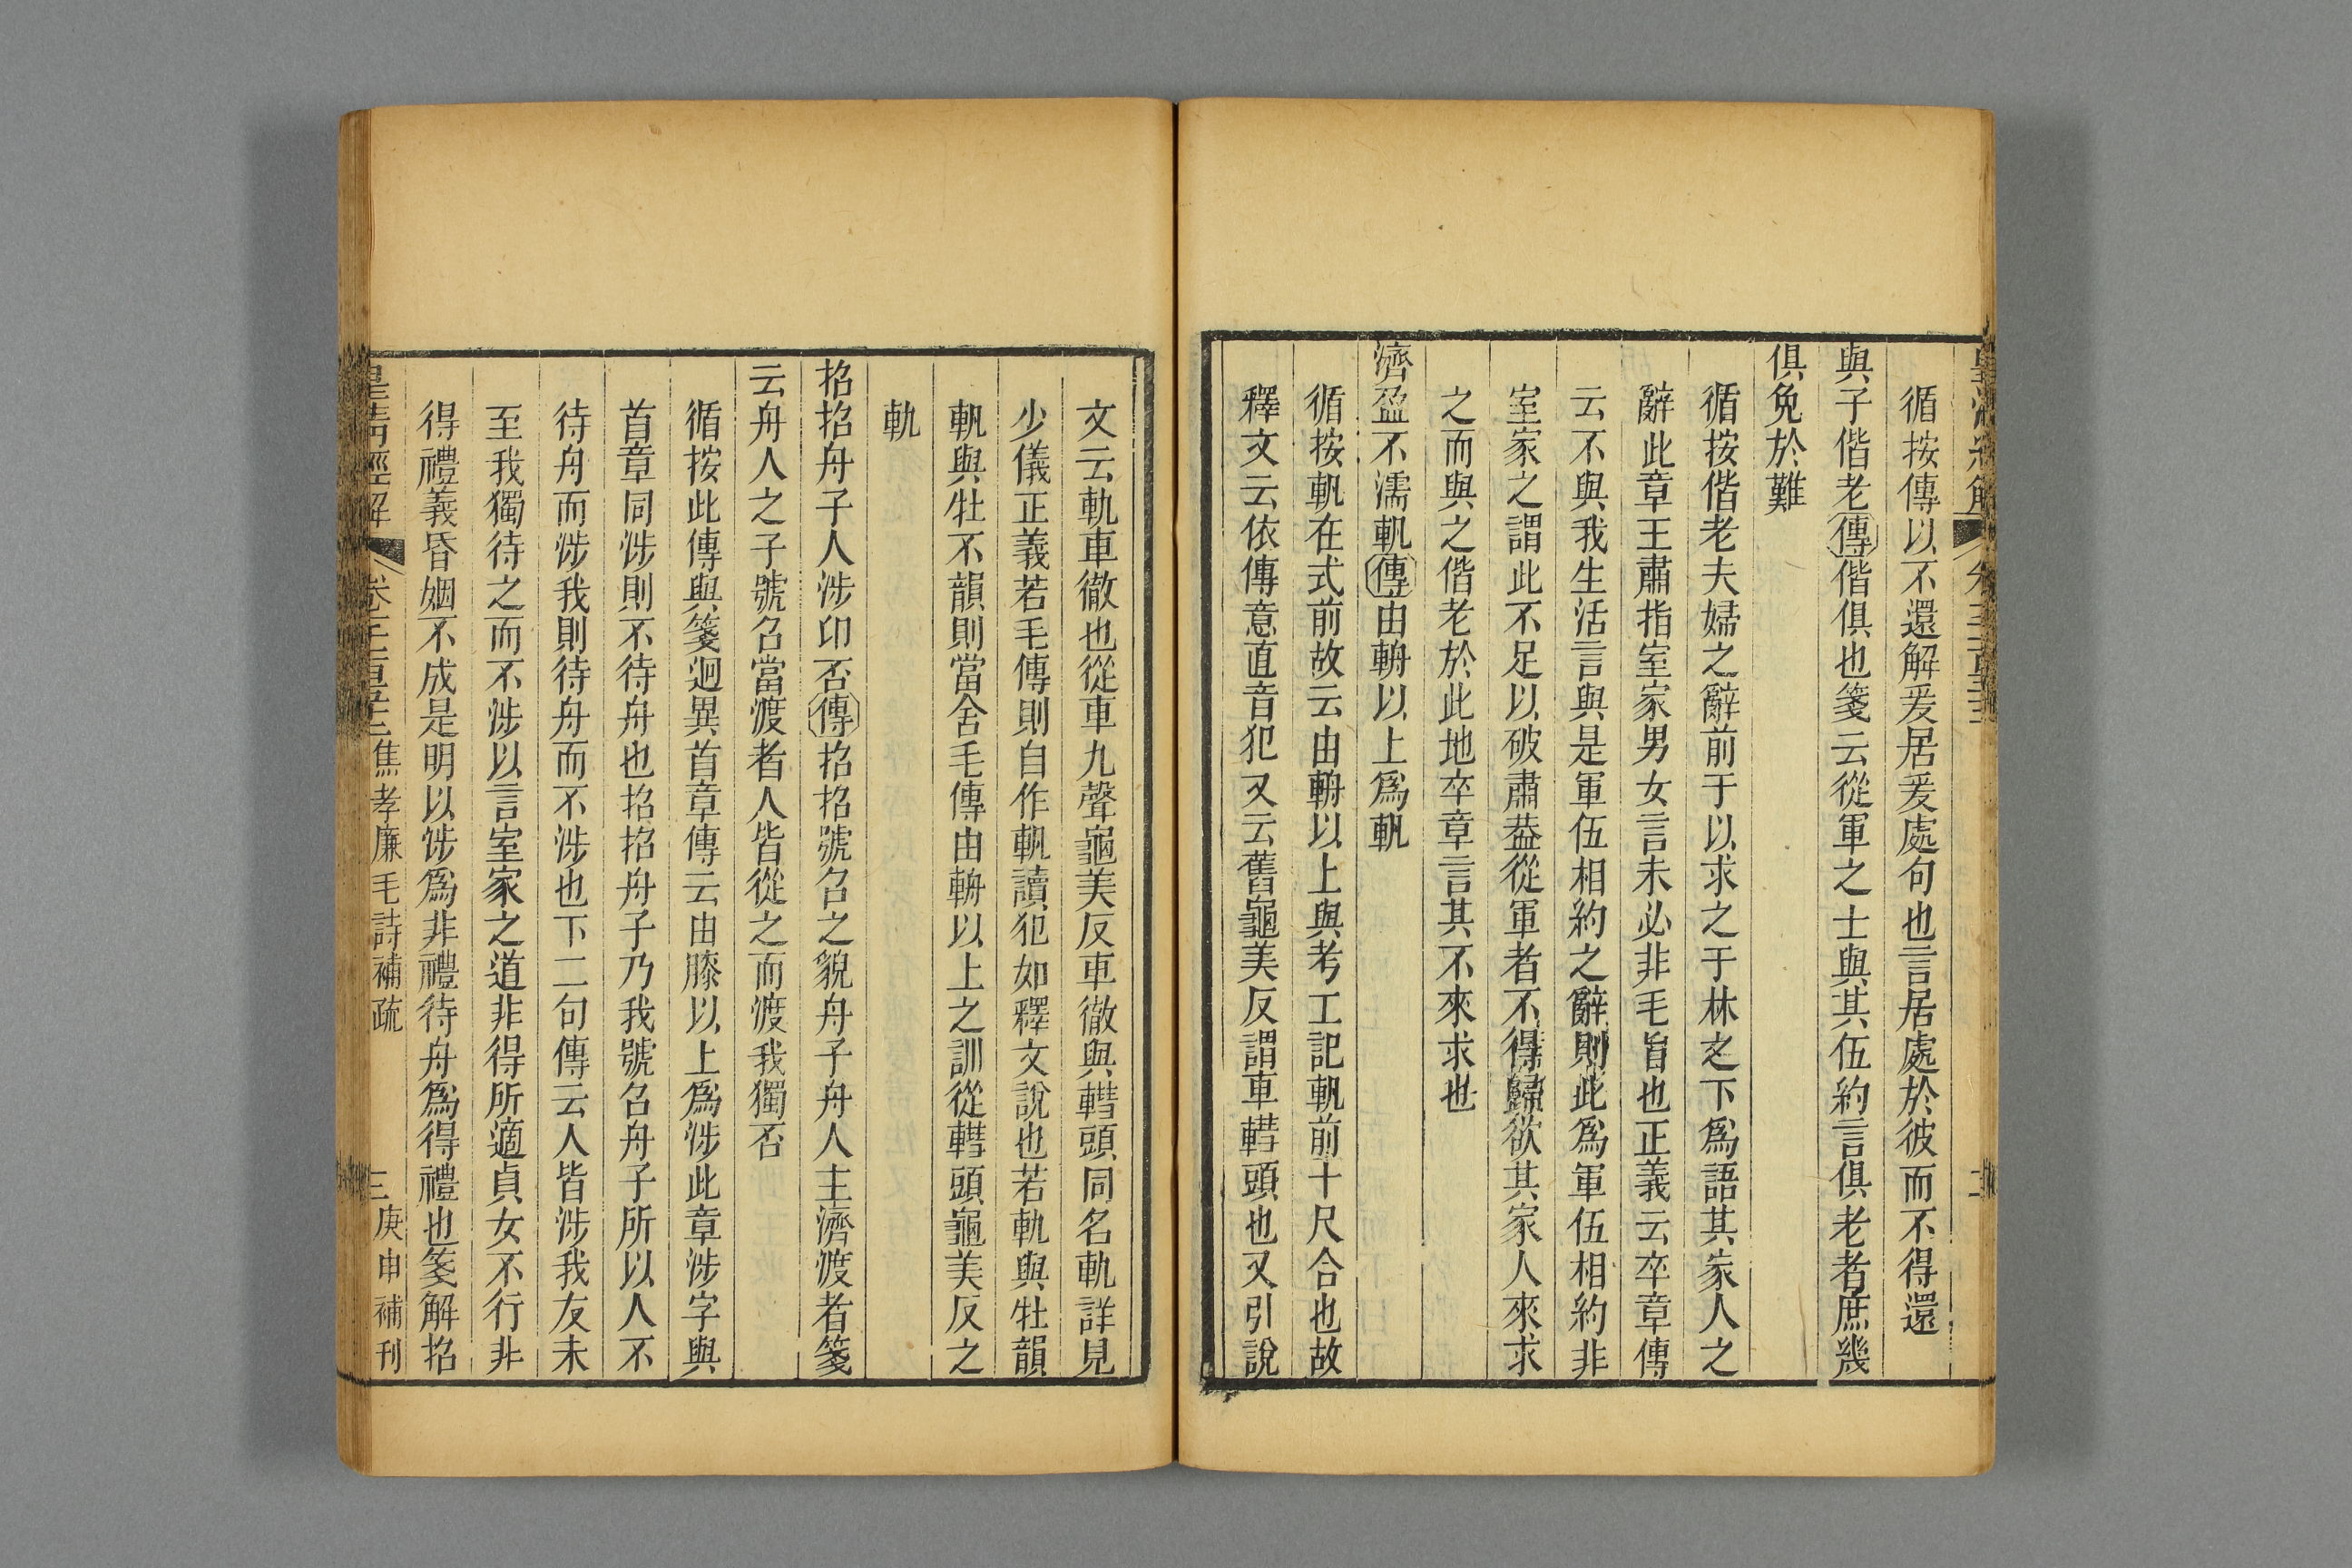 循按傳以不還解爰居爰處句也言居處於彼而不得還
與子偕老傳偕俱也箋云從軍之士與其伍約言俱老者庶幾
俱免於難
循按偕老夫婦之辭前于以求之于林之下爲語其家人之
辭此章王肅指室家男女言未必非毛旨也正義云卒章傳
云不與我生活言與是軍伍相約之辭則此爲軍伍相約非
室家之謂此不足以破肅葢從軍者不得歸欲其家人來求
之而與之偕老於此地卒章言其不來求也
濟盈不濡軓傳由輈以上爲軓
循按軓在式前故云由輈以上與考工記軓前十尺合也故
釋文云依傳意直音犯又云舊龜美反謂車轊頭也又引說
文云軌車徹也從車九聲龜美反車徹與轊頭同名軌詳見
少儀正義若毛傳則自作軓讀犯如釋文說也若軌與牡韻
軓與牡不韻則當舍毛傳由輈以上之訓從轊頭龜美反之
軌
招招舟子人涉卬否傳招招號召之貌舟子舟人主濟渡者箋
云舟人之子號召當渡者人皆從之而渡我獨否
循按此傳與箋迥異首章傳云由膝以上爲涉此章涉字與
首章同涉則不待舟也招招舟子乃我號召舟子所以人不
待舟而涉我則待舟而不涉也下二句傳云人皆涉我友未
至我獨待之而不涉以言室家之道非得所適貞女不行非
得禮義昏姻不成是明以涉爲非禮待舟爲得禮也箋解招
皇清經解 焦孝廉毛詩補疏 三 庚申補刊